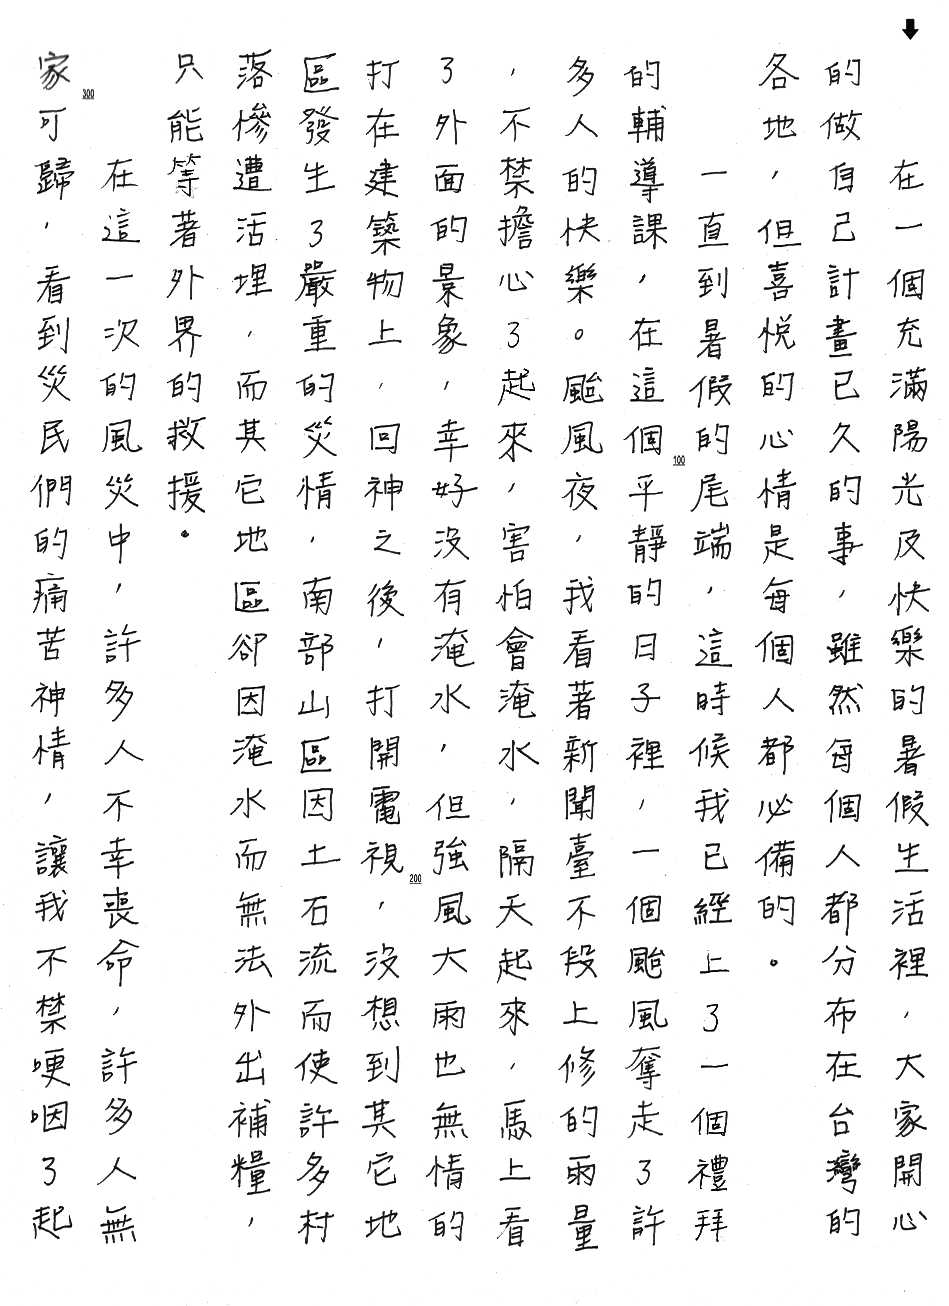 在一個充滿陽光及快樂的暑假生活裡，大家開心
的做自己計畫已久的事，雖然每個人都分布在台灣的
各地，但喜悅的心情是每個人都必備的。
一直到暑假的尾端，這時候我已經上了一個禮拜
的輔導課，在這個平靜的日子裡，一個颱風奪走了許
多人的快樂。颱風夜，我看著新聞臺不段上修的雨量
，不禁擔心了起來，害怕會淹水，隔天起來，馬上看
了外面的景象，幸好沒有淹水，但強風大雨也無情的
打在建築物上，回神之後，打開電視，沒想到其它地
區發生了嚴重的災情，南部山區因土石流而使許多村
落慘遭活埋，而其它地區卻因淹水而無法外出補糧，
只能等著外界的救援。
在這一次的風災中，許多人不幸喪命，許多人無
家可歸，看到災民們的痛苦神情，讓我不禁哽咽了起
100
200
300